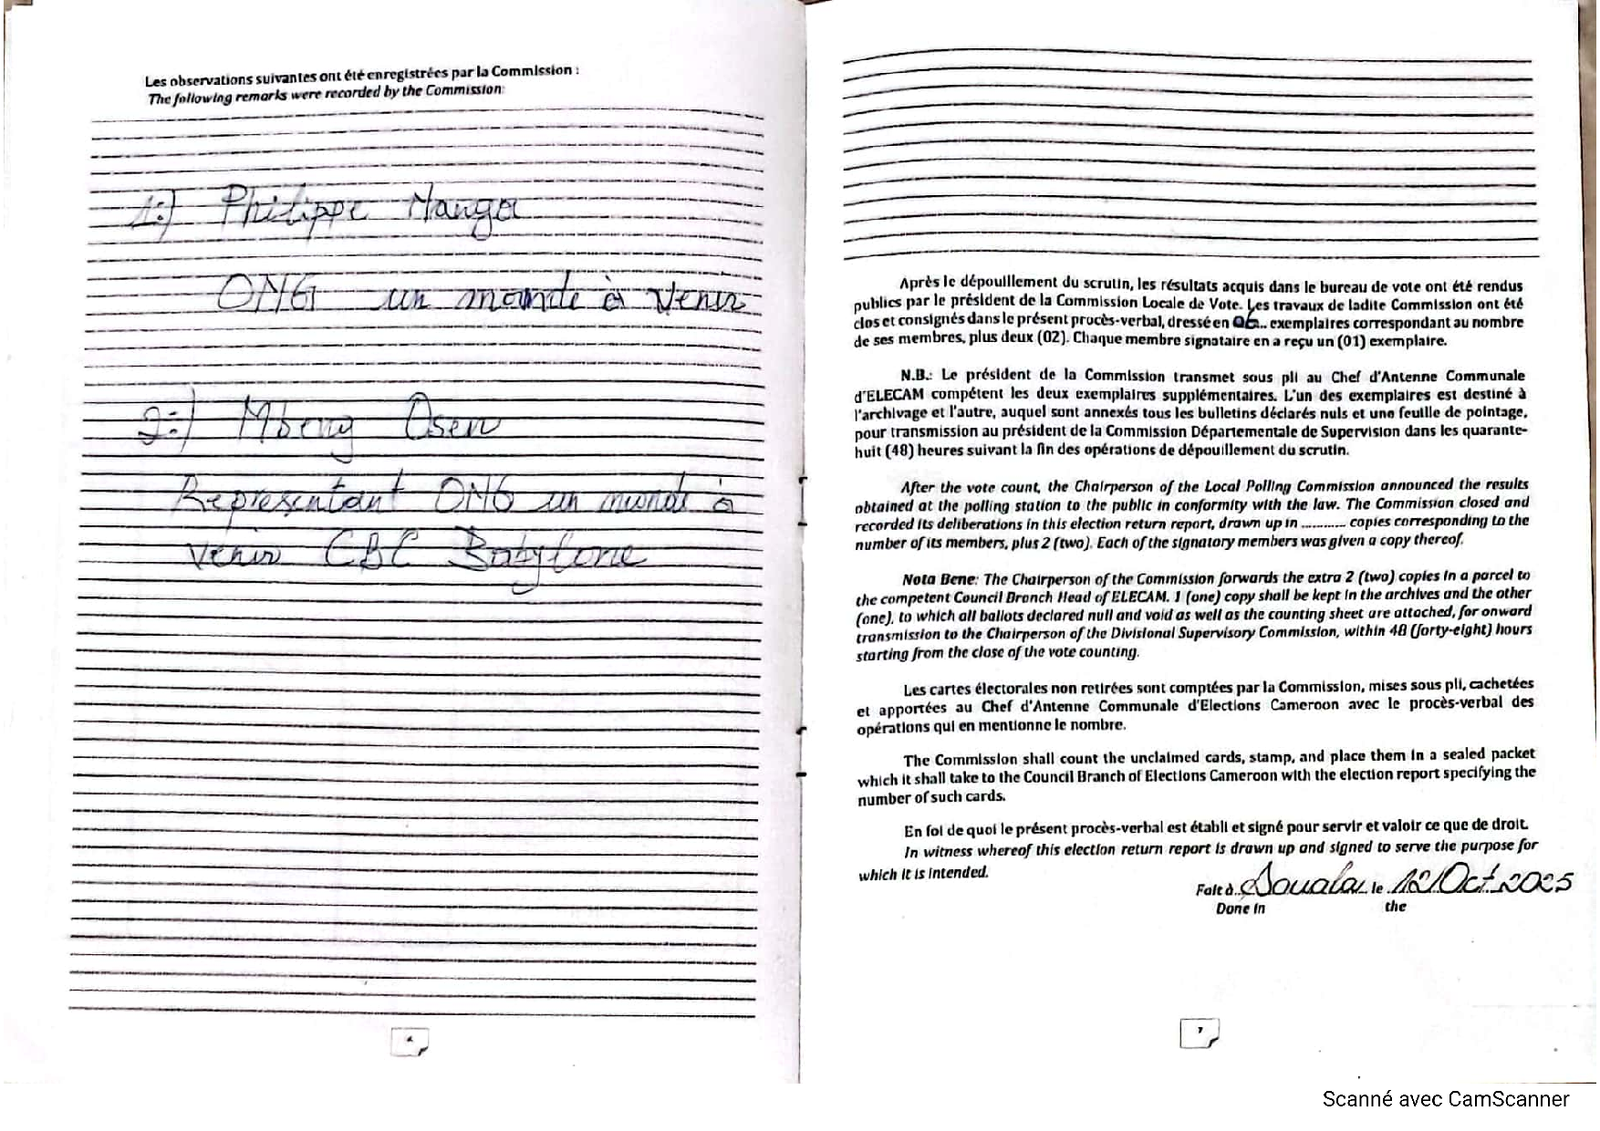 Les observations suivantes ont été enregistrées par la Commission :
The following remarks were recorded by the Commission:
1:) Philippe Manga
ONG un monde à venir
2:) Mbeng Osen
Representant ONG un monde à
venir CBC Babylone
6
Après le dépouillement du scrutin, les résultats acquis dans le bureau de vote ont été rendus
publics par le président de la Commission Locale de Vote. Les travaux de ladite Commission ont été
clos et consignés dans le présent procès-verbal, dressé en 06.. exemplaires correspondant au nombre
de ses membres, plus deux (02). Chaque membre signataire en a reçu un (01) exemplaire.
N.B.: Le président de la Commission transmet sous pli au Chef d'Antenne Communale
d'ELECAM compétent les deux exemplaires supplémentaires. L'un des exemplaires est destiné à
l'archivage et l'autre, auquel sont annexés tous les bulletins déclarés nuls et une feuille de pointage,
pour transmission au président de la Commission Départementale de Supervision dans les quarante-
huit (48) heures suivant la fin des opérations de dépouillement du scrutin.
After the vote count, the Chairperson of the Local Polling Commission announced the results
obtained at the polling station to the public in conformity with the law. The Commission closed and
recorded its deliberations in this election return report, drawn up in ........... copies corresponding to the
number of its members, plus 2 (two). Each of the signatory members was given a copy thereof.
Nota Bene: The Chairperson of the Commission forwards the extra 2 (two) copies in a parcel to
the competent Council Branch Head of ELECAM. 1 (one) copy shall be kept in the archives and the other
(one), to which all ballots declared null and void as well as the counting sheet are attached, for onward
transmission to the Chairperson of the Divisional Supervisory Commission, within 48 (forty-eight) hours
starting from the close of the vote counting.
Les cartes électorales non retirées sont comptées par la Commission, mises sous pli, cachetées
et apportées au Chef d'Antenne Communale d'Elections Cameroon avec le procès-verbal des
opérations qui en mentionne le nombre.
The Commission shall count the unclaimed cards, stamp, and place them in a sealed packet
which it shall take to the Council Branch of Elections Cameroon with the election report specifying the
number of such cards.
En foi de quoi le présent procès-verbal est établi et signé pour servir et valoir ce que de droit.
In witness whereof this election return report is drawn up and signed to serve the purpose for
which it is intended.
Fait à Douala le 12 Oct 2025
Done in the
7
Scanné avec CamScanner